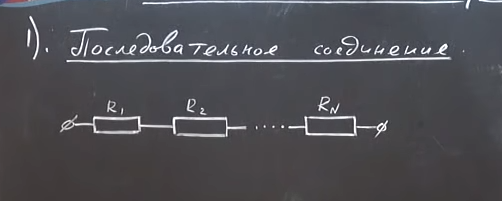 1). Последовательное соединение.
R1 R2 .... RN